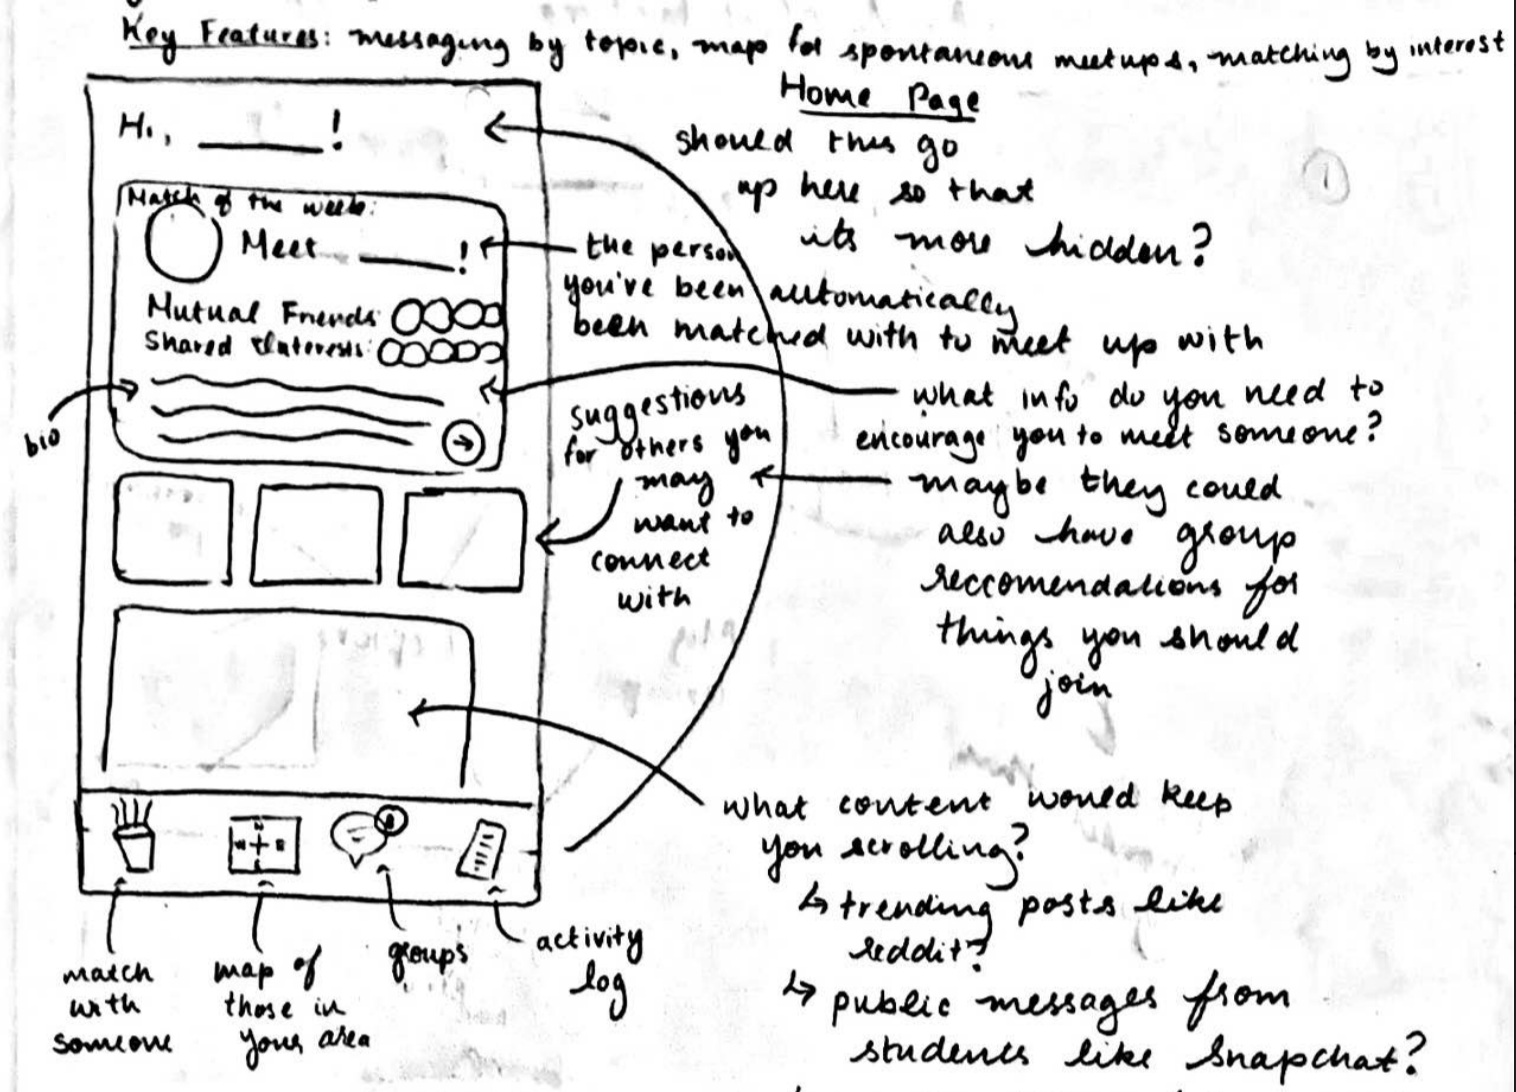 Key Features: messaging by topic, map for spontaneous meetups, matching by interest
Home Page
Hi, ______!
should this go
up here so that
its more hidden?
Match of the week:
Meet ______!
the person
you've been automatically
been matched with to meet up with
Mutual Friends:
Shared Interests:
bio
what info do you need to
encourage you to meet someone?
suggestions
for others you
may
want to
connect
with
maybe they could
also have group
reccomendations for
things you should
join
what content would keep
you scrolling?
↳ trending posts like
reddit?
↳ public messages from
students like Snapchat?
match
with
someone
map of
those in
your area
groups
activity
log